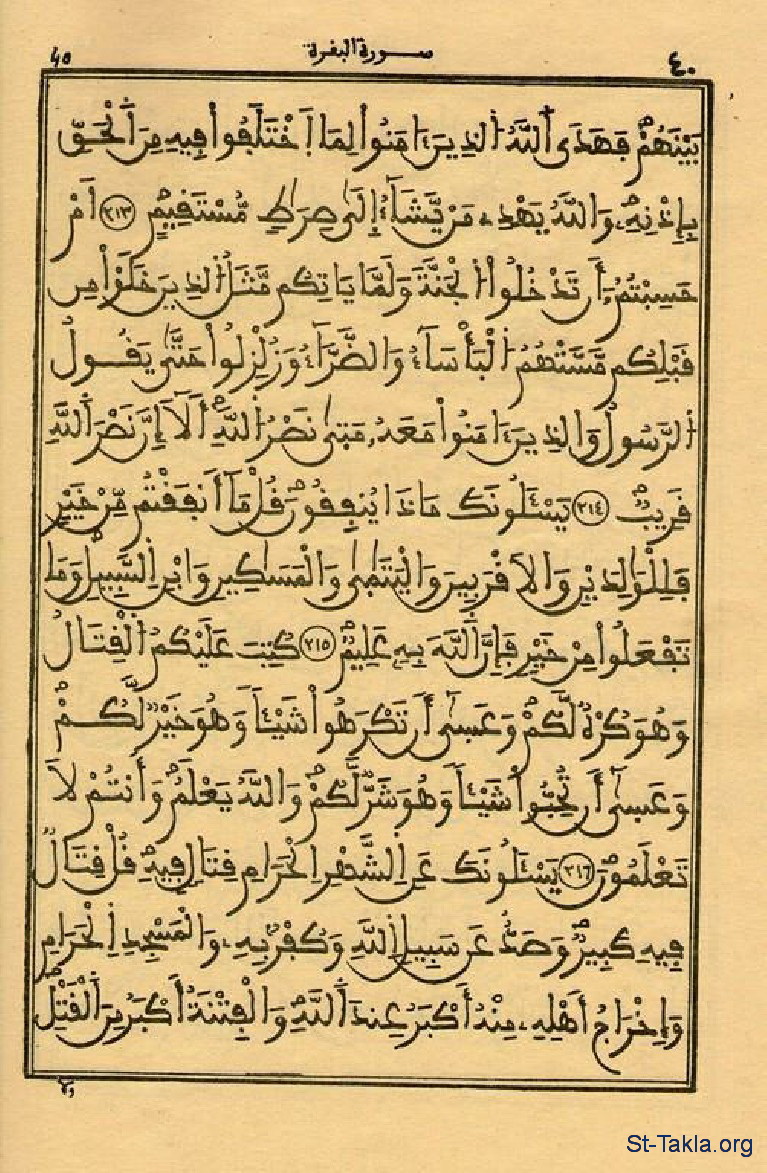 40 سورة البقرة ٤٠
بَيْنَهُمْ فَهَدَى اَ۬للَّهُ اُ۬لذِينَ ءَامَنُواْ لِمَا اَ۪خْتَلَفُواْ فِيهِ مِنَ اَ۬لْحَقِّ
بِإِذْنِهِۦ وَاللَّهُ يَهْدِے مَنْ يَّشَآءُ إِلَىٰ صِرَٰطٍ مُّسْتَقِيمٍ ٢١٣ أَمْ
حَسِبْتُمُۥٓ أَن تَدْخُلُواْ اُ۬لْجَنَّةَ وَلَمَّا يَاتِكُم مَّثَلُ اُ۬لذِينَ خَلَوْاْ مِن
قَبْلِكُم مَّسَّتْهُمُ اُ۬لْبَأْسَآءُ وَالضَّرَّآءُ وَزُلْزِلُواْ حَتَّىٰ يَقُولُ
اُ۬لرَّسُولُ وَالذِينَ ءَامَنُواْ مَعَهُۥ مَتَىٰ نَصْرُ اُ۬للَّهِ أَلَآ إِنَّ نَصْرَ اَ۬للَّهِ
قَرِيبٌ ٢١٤ يَسْـَٔلُونَكَ مَاذَا يُنفِقُونَ قُلْ مَآ أَنفَقْتُم مِّنْ خَيْرٍ
فَلِلْوَٰلِدَيْنِ وَالَاقْرَبِينَ وَالْيَتَٰمَىٰ وَالْمَسَٰكِينِ وَابْنِ اِ۬لسَّبِيلِ وَمَا
تَفْعَلُواْ مِنْ خَيْرٍ فَإِنَّ اَ۬للَّهَ بِهِۦ عَلِيمٌ ٢١٥ كُتِبَ عَلَيْكُمُ اُ۬لْقِتَالُ
وَهُوَ كُرْهٌ لَّكُمْ وَعَسَىٰٓ أَن تَكْرَهُواْ شَيْـٔاً وَهُوَ خَيْرٌ لَّكُمْ
وَعَسَىٰٓ أَن تُحِبُّواْ شَيْـٔاً وَهُوَ شَرٌّ لَّكُمْ وَاللَّهُ يَعْلَمُ وَأَنتُمْ لَا
تَعْلَمُونَ ٢١٦ يَسْـَٔلُونَكَ عَنِ اِ۬لشَّهْرِ اِ۬لْحَرَامِ قِتَالٍ فِيهِ قُلْ قِتَالٌ
فِيهِ كَبِيرٌ وَصَدٌّ عَن سَبِيلِ اِ۬للَّهِ وَكُفْرٌ بِهِۦ وَالْمَسْجِدِ اِ۬لْحَرَامِ
وَإِخْرَاجُ أَهْلِهِۦ مِنْهُ أَكْبَرُ عِندَ اَ۬للَّهِ وَالْفِتْنَةُ أَكْبَرُ مِنَ اَ۬لْقَتْلِ
ولا
St-Takla.org